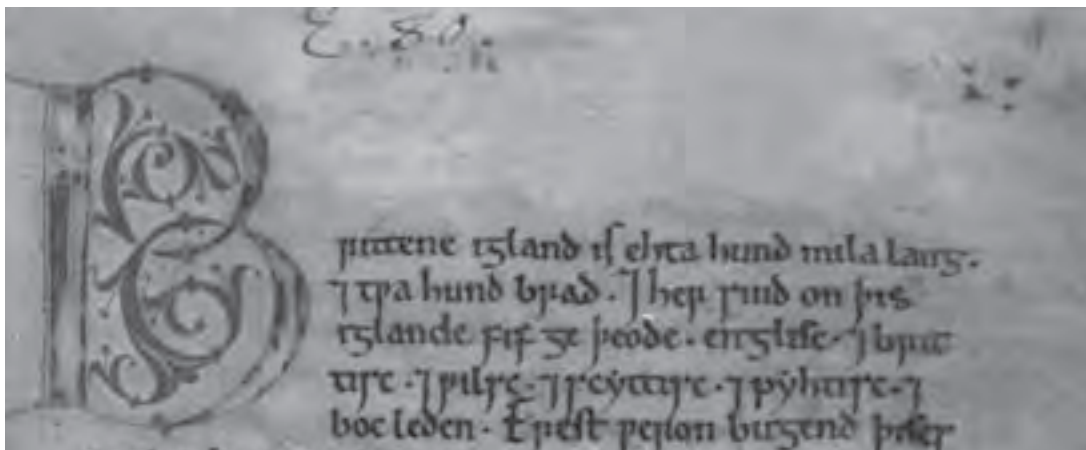 E. 80.
Brittene igland is ehta hund mila lang.
⁊ tƿa hund brad. ⁊ her sind on þis
iglande fif ge þeode. englisc. ⁊ brit
tisc. ⁊ ƿilsc. ⁊ scyttisc. ⁊ pyhtisc. ⁊
boc leden. Erest ƿeron bugend þises